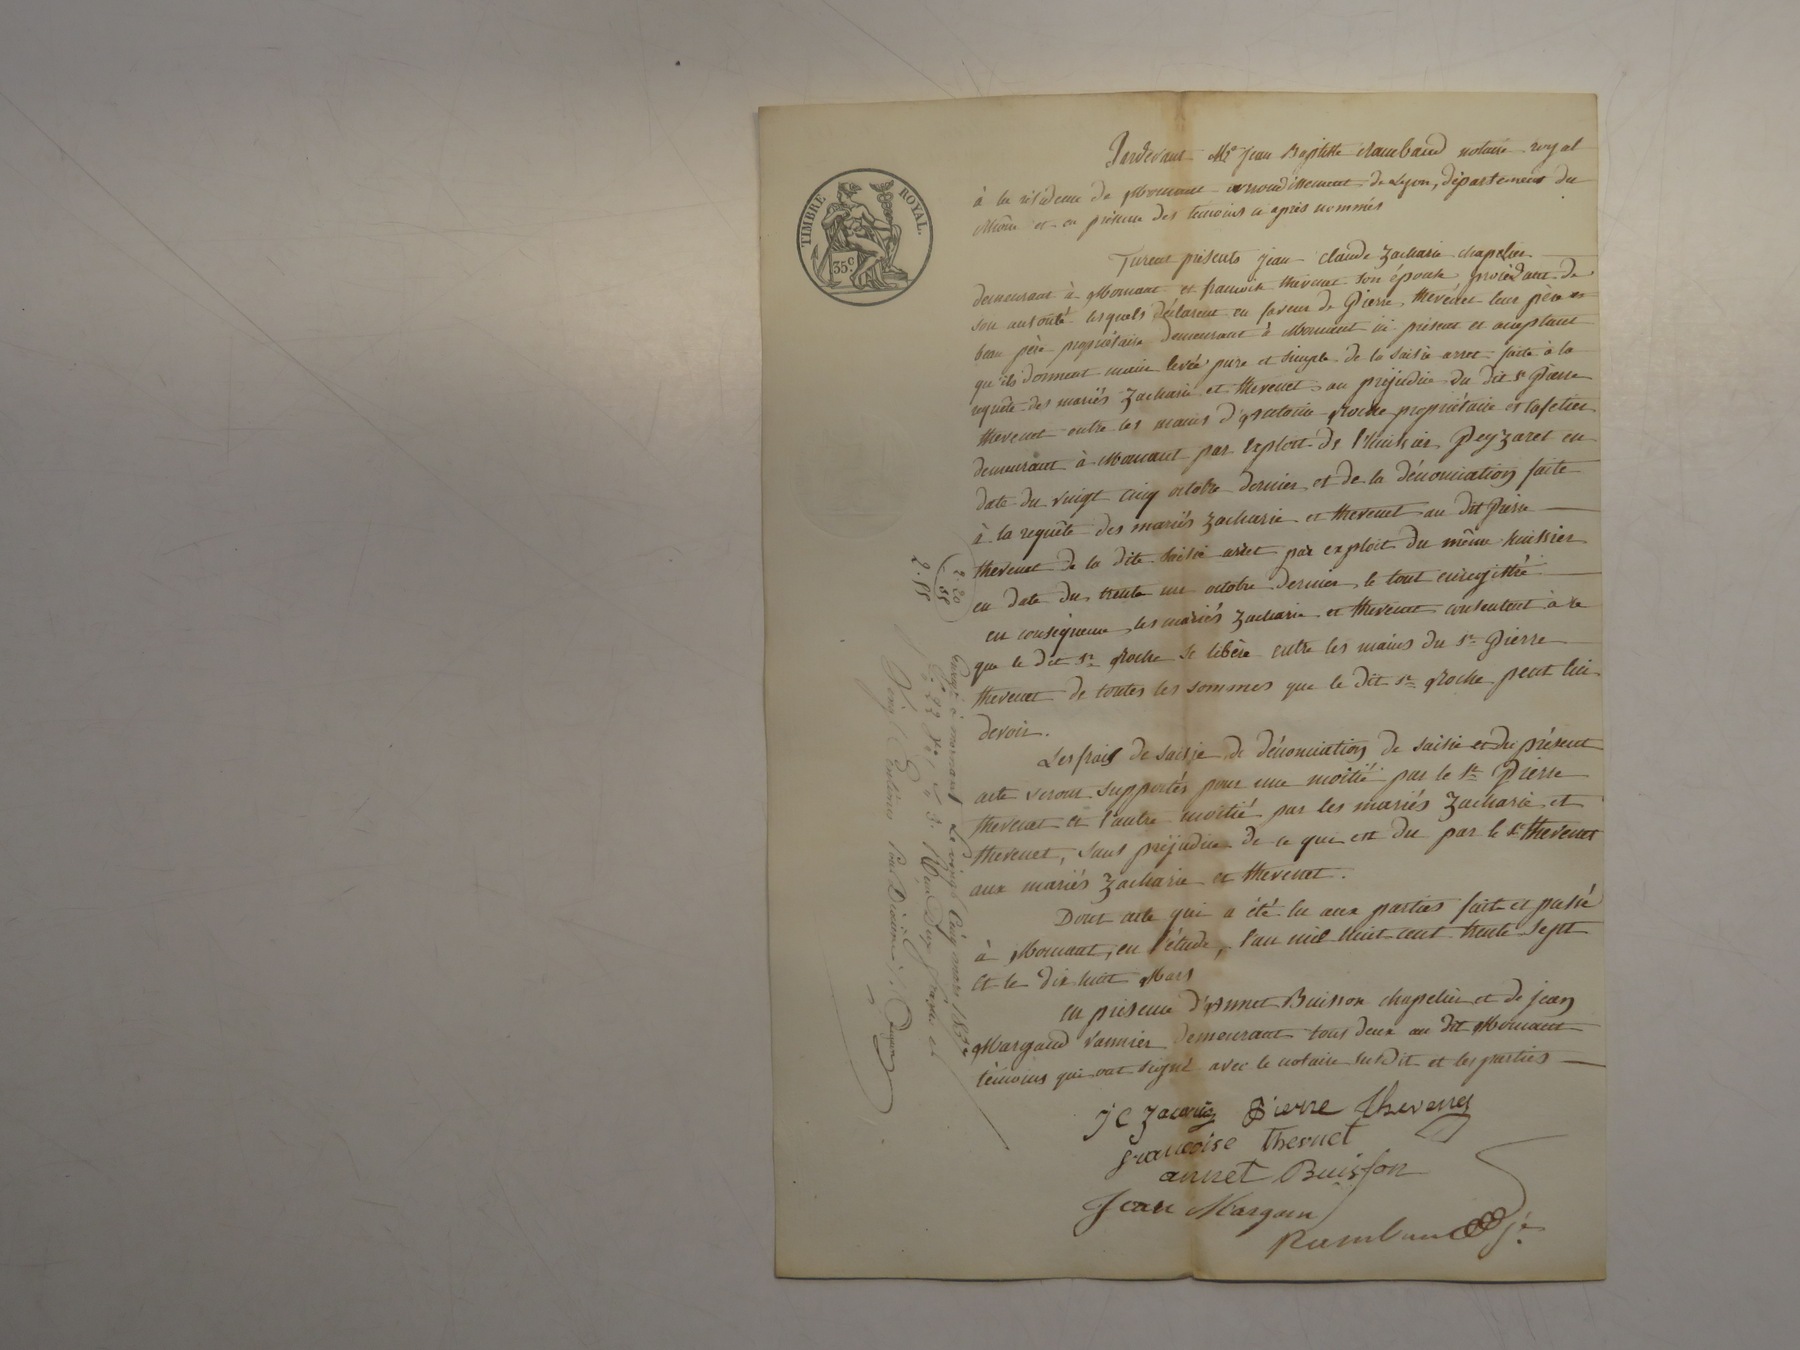 TIMBRE ROYAL.
35 c.
Pardevant Me Jean Baptiste Rambaud notaire royal
à la résidence de Mornant arrondissement de Lyon, département du
Rhône et en présence des temoins ci après nommés
Furent présents Jean Claude Zacharie chapelier
demeurant à Mornant et francoise thevenet son épouse procédant de
son autorité lesquels déclarent en faveur de Pierre thevenet leur père et
beau père propriétaire demeurant à Mornant ici présent et acceptant
qu'ils donnent main levée pure et simple de la saisie arret faite à la
requête des mariés Zacharie et thevenet au préjudice du dit Sr Pierre
thevenet entre les mains d'Antoine Roche propriétaire et cafetier
demeurant à Mornant par exploit de l'huissier Peyzaret en
date du vingt cinq octobre dernier et de la dénonciation faite
à la requête des mariés Zacharie et thevenet au dit Pierre
thevenet de la dite saisie arret par exploit du même huissier
en date du trente un octobre dernier le tout enregistré
en conséquence les mariés Zacharie et thevenet consentent à ce
que le dit Sr Roche se libère entre les mains du Sr Pierre
thevenet de toutes les sommes que le dit Sr Roche peut lui
devoir.
Les frais de saisie de dénonciation de saisie et du présent
acte seront supportés pour une moitié par le Sr Pierre
thevenet et l'autre moitié par les mariés Zacharie et
thevenet, sans préjudice de ce qui est du par le Sr thevenet
aux mariés Zacharie et thevenet.
Dont acte qui a été lu aux parties fait et passé
à Mornant, en l'étude, l'an mil huit cent trente sept
et le dix huit Mars
en présence d'Annet Buisson chapelier et de jean
Margaud vannier demeurant tous deux au dit Mornant
témoins qui ont signé avec le notaire susdit et les parties
J C Zacarie Pierre thevenet
francoise thevnet
annet Buisson
Jean Margau
Rambaud
2. 20
55
2. 55
Enregé à mornant Le vingt cinq mars 1837
fo 22 Ro, Co 3. Reçu Deux francs et
Vingt Centimes Pour Décime